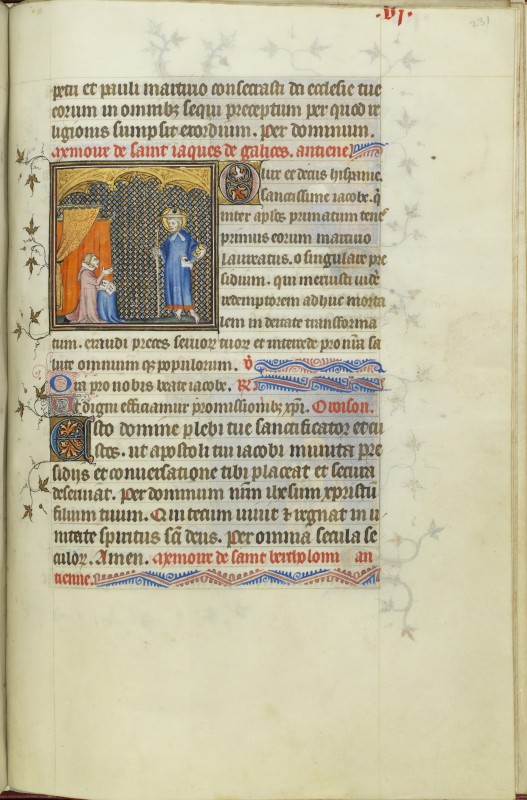 .vj.
231
petri et pauli martirio consecrasti da ecclesie tue
eorum in omnibꝫ sequi preceptum per quos re
ligionis sumpsit exordium. Per dominum.
Memoire de saint iaques de galices. antiene
O lux et decus hispanie.
sanctissime iacobe. q̄
inter ap̄los primatum tenēs
primus eorum martirio
laureatus. o singulare pre
sidium. qui meruisti videre
redemptorem adhuc morta
lem in deitate transforma
tum. exaudi preces seruorꝝ tuorꝝ et intercede pro nr̄a sa
lute omnium qꝫ populorum. v̄
Ora pro nobis beate iacobe. R̄
Vt digni efficiamur promissionibꝫ xp̄i. Oroison.
Esto domine plebi tue sanctificator et cu
stos. ut apostoli tui iacobi munita pre
sidijs et conuersatione tibi placeat et secura
deseruiat. Per dominum nr̄m ihesum xpristū
filium tuum. Qui tecum viuit ⁊ regnat in u
nitate spiritus sc̄i deus. Per omnia secula se
culorꝝ. Amen. Memoire de saint bertholomi an
tienne.